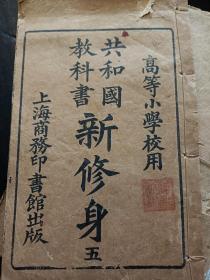 高等小學校用
共和國
教科書
新修身
五
上海商務印書館出版